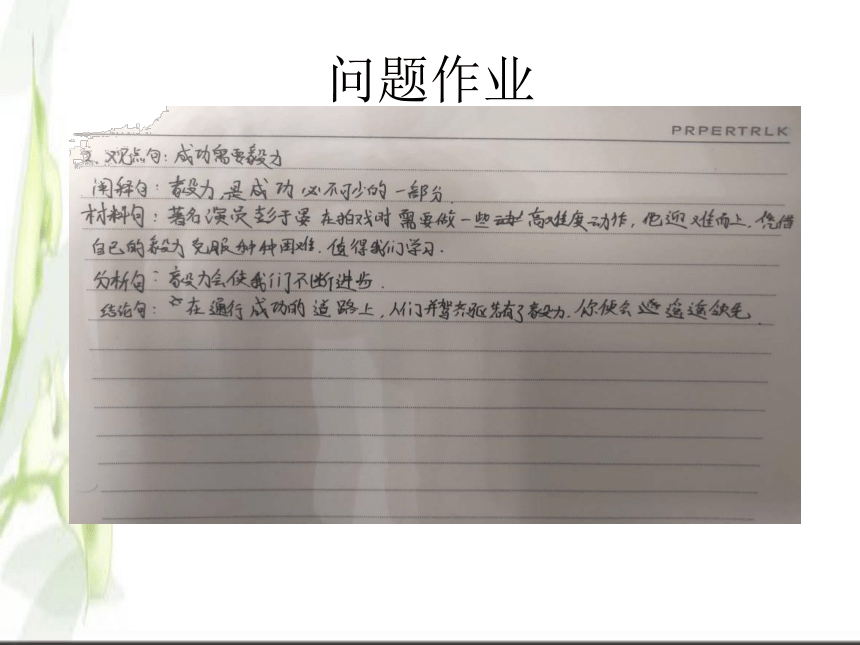 问题作业
PRPERTRLK
2、观点句：成功需要毅力
阐释句：毅力，是成功必不可少的一部分.
材料句：著名演员彭于晏在拍戏时需要做一些高难度动作，他迎难而上.凭借
自己的毅力克服种种困难.值得我们学习.
分析句：毅力会使我们不断进步.
结论句：在通行成功的道路上，人们并驾齐驱有了毅力.你便会遥遥领先.